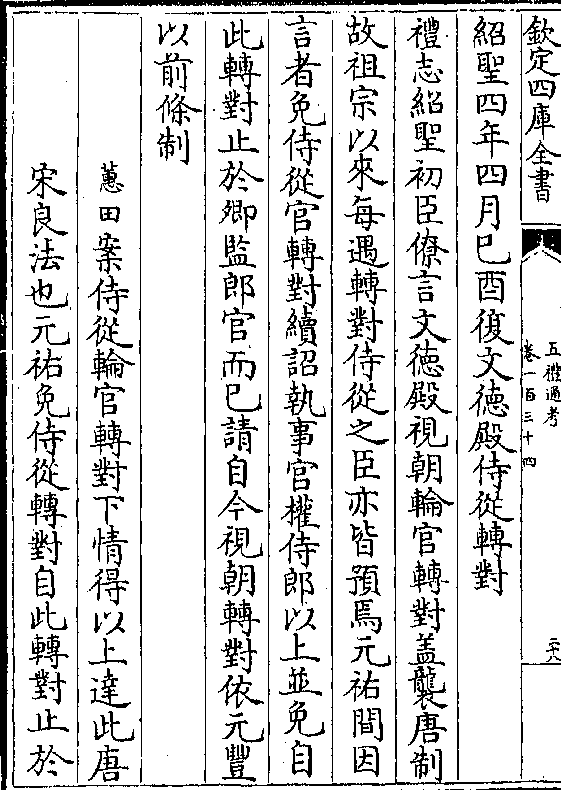 欽定四庫全書
五禮通考
卷一百三十四
二十八
紹聖四年四月己酉復文德殿侍從轉對
禮志紹聖初臣僚言文德殿視朝輪官轉對蓋襲唐制
故祖宗以來每遇轉對侍從之臣亦皆預焉元祐間因
言者免侍從官轉對續詔執事官權侍郎以上並免自
此轉對止於卿監郎官而已請自今視朝轉對依元豐
以前條制
蕙田案侍從輪官轉對下情得以上達此唐
宋良法也元祐免侍從轉對自此轉對止於